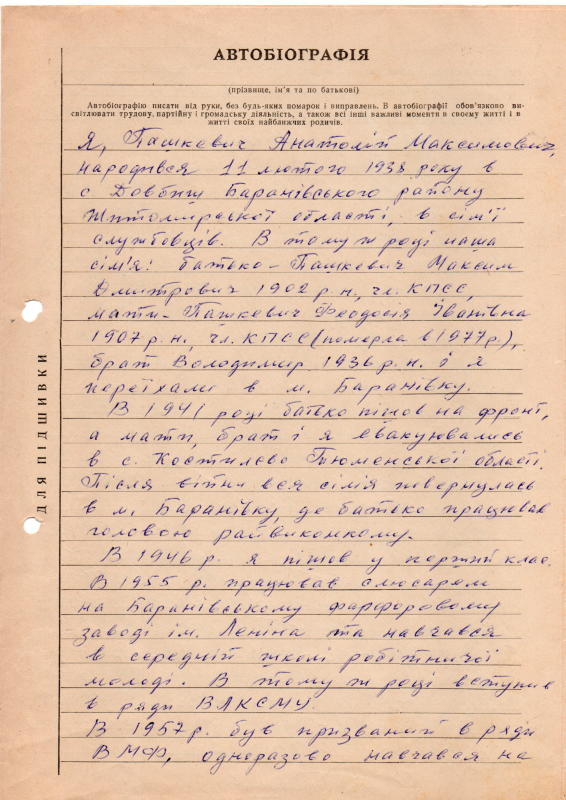 АВТОБІОГРАФІЯ
(прізвище, ім'я та по батькові)
Автобіографію писати від руки, без будь-яких помарок і виправлень. В автобіографії обов'язково ви-
світлювати трудову, партійну і громадську діяльність, а також всі інші важливі моменти в своєму житті і в
житті своїх найближчих родичів.
Я, Пашкевич Анатолій Максимович,
народився 11 лютого 1938 року в
с. Довбиш Баранівського району
Житомирської області, в сім'ї
службовців. В тому ж році наша
сім'я: батько - Пашкевич Максим
Дмитрович 1902 р.н., чл. КПСС,
мати - Пашкевич Феодосія Іванівна
1907 р.н., чл. КПСС (померла в 1977 р.),
брат Володимир 1936 р.н. і я
переїхали в м. Баранівку.
В 1941 році батько пішов на фронт,
а мати, брат і я евакуювались
в с. Костилево Тюменської області.
Після війни вся сімія повернулась
в м. Баранівку, де батько працював
головою райвиконкому.
В 1946 р. я пішов у перший клас.
В 1955 р. працював слюсарем
на Баранівському фарфоровому
заводі ім. Леніна та навчався
в середній школі робітничої
молоді. В тому ж році вступив
в ряди ВЛКСМУ.
В 1957 р. був призваний в ряди
ВМФ, одноразово навчався на
ДЛЯ ПІДШИВКИ